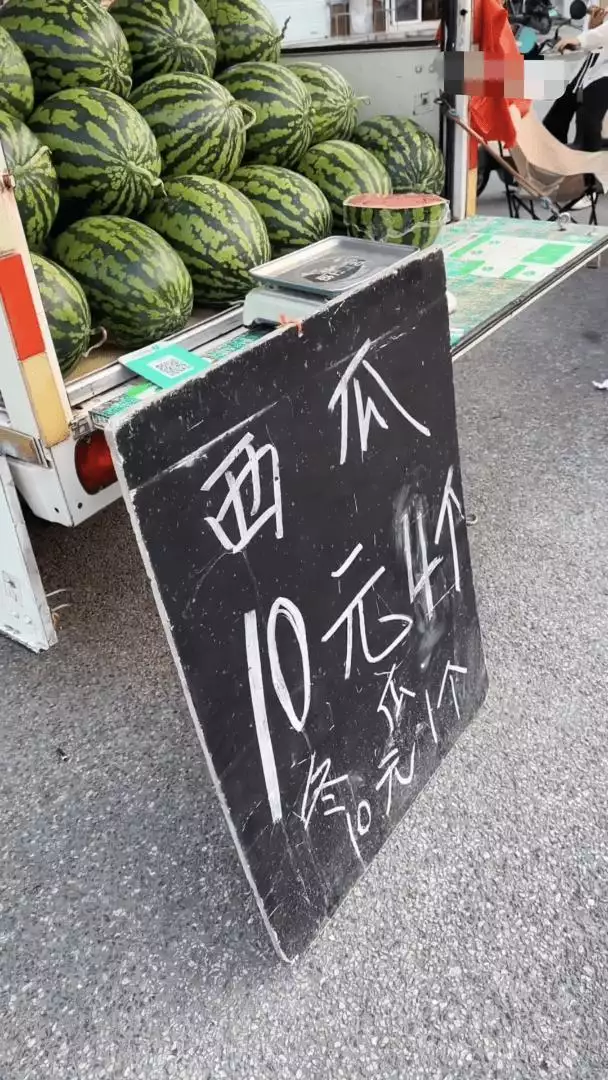 西瓜
10元4个
冬瓜
10元1个